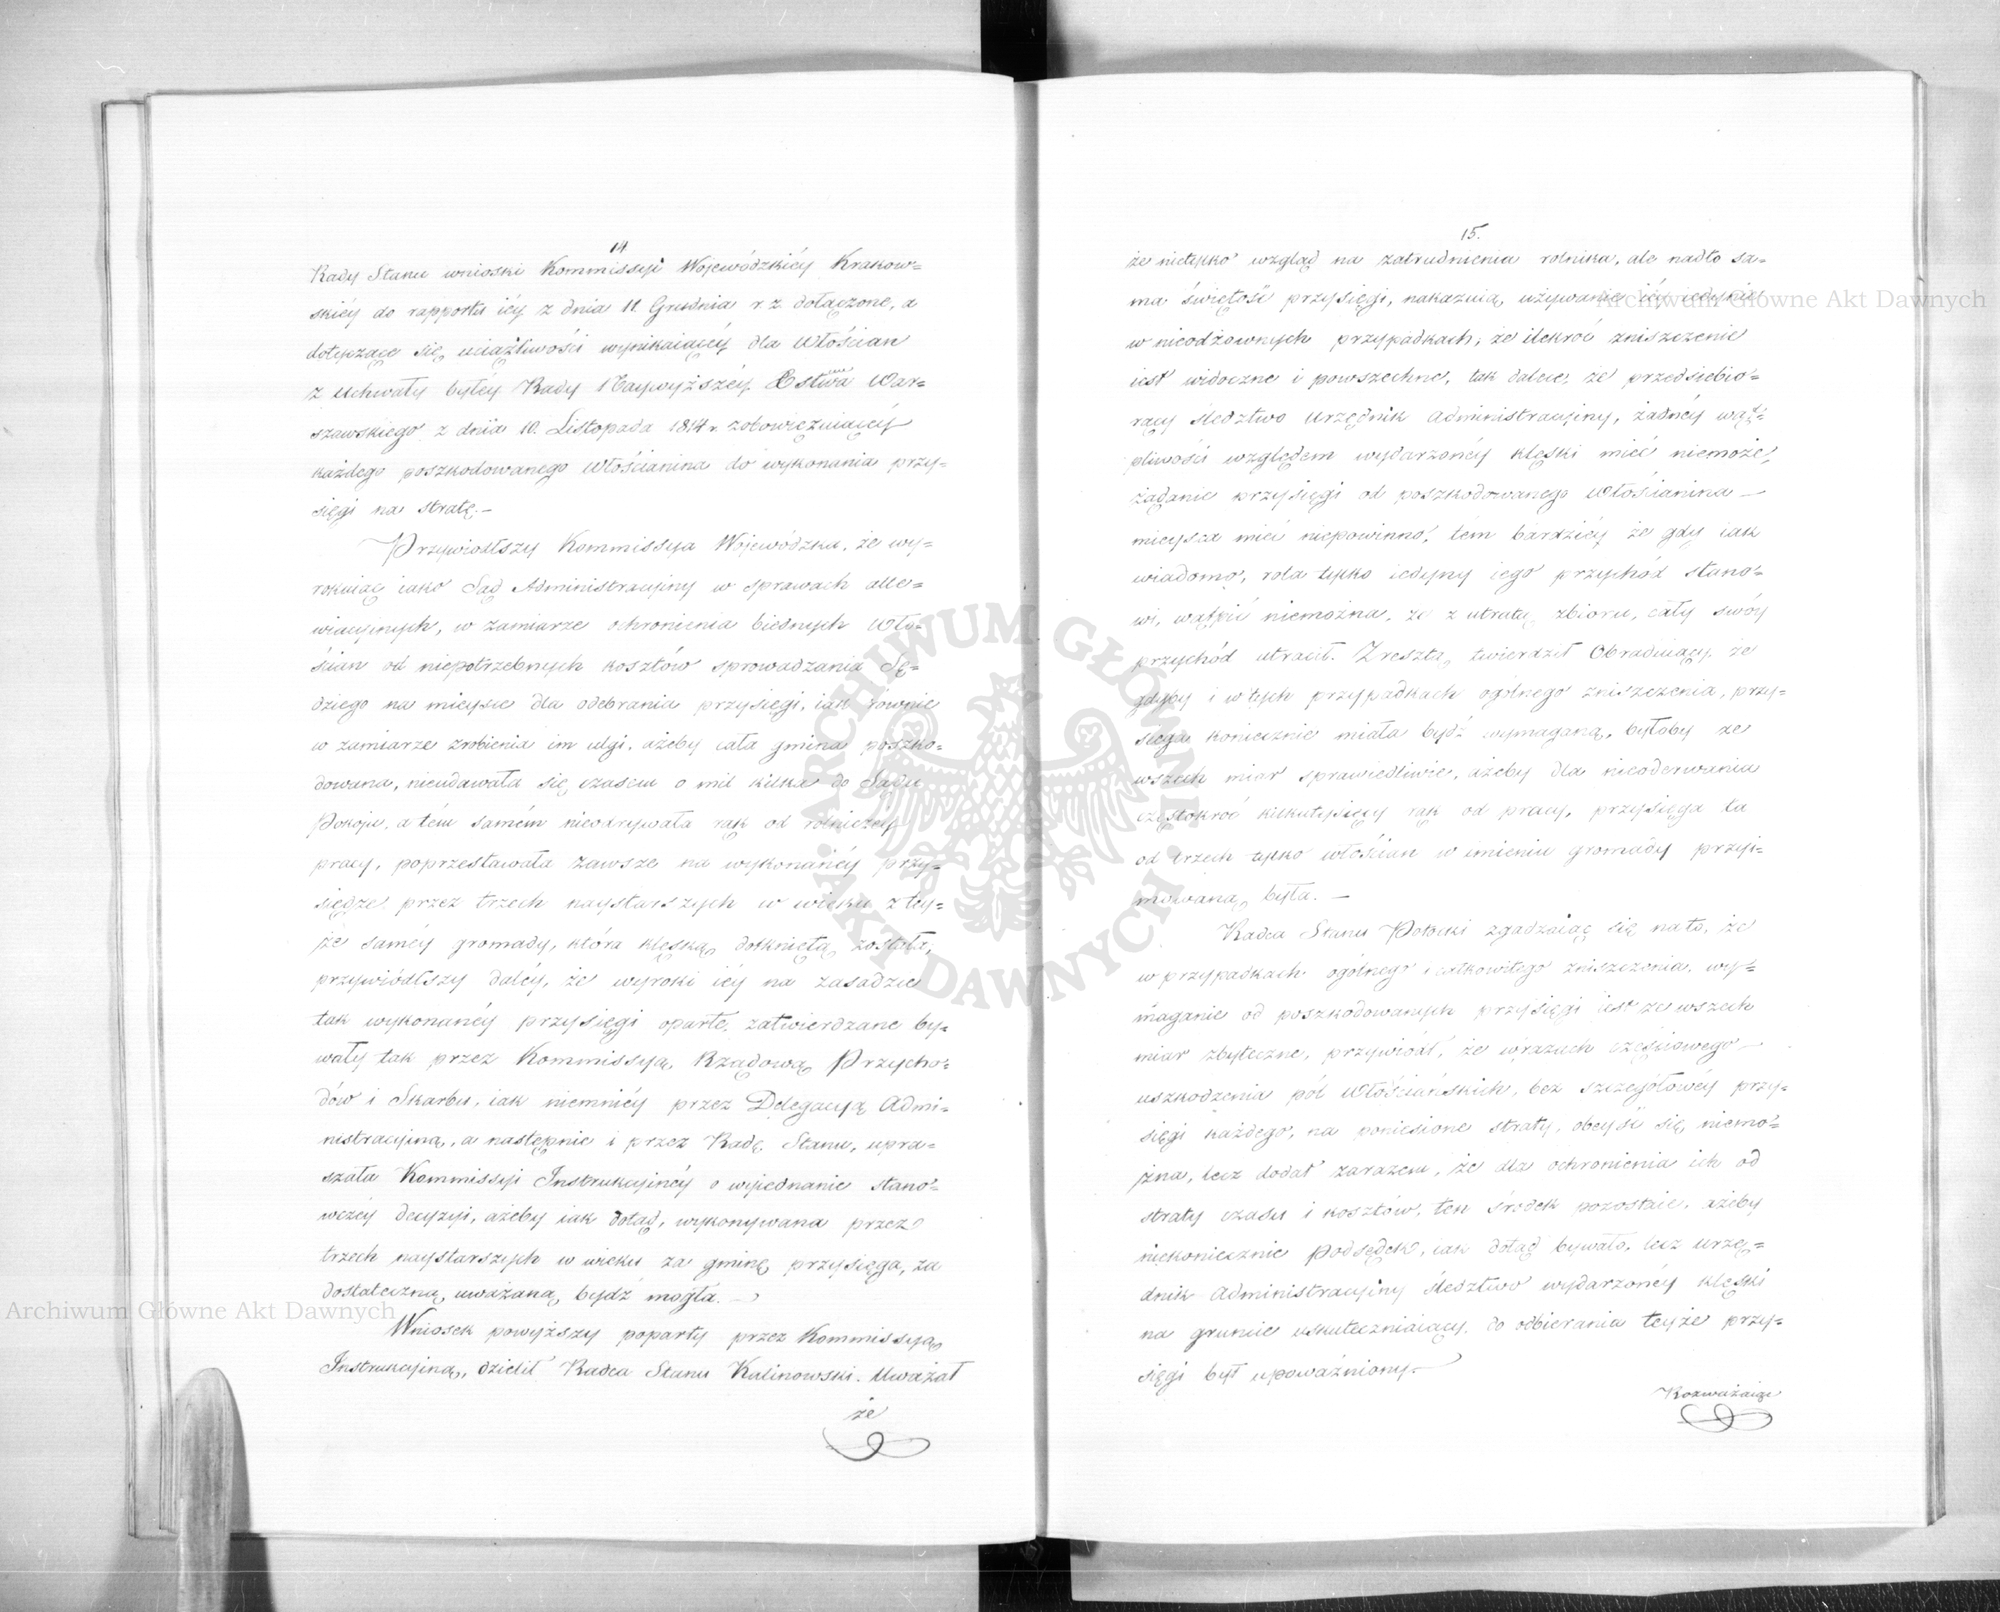 14
Rady Stanu wnioski Kommissyi Wojewódzkiéy Krakow=
skiéy do rapportu iéy z dnia 11. Grudnia r. z. dołączone, a
dotyczące się uciążliwości wynikaiącéy dla Włościan
z Uchwały byłéy Rady Naywyższéy Xstwa War=
szawskiego z dnia 10. Listopada 1814 r. zobowięzuiącéy
każdego poszkodowanego Włościanina do wykonania przy=
sięgi na stratę.—
Przywiodłszy Kommissya Wojewódzka, że wy=
rokuiąc iako Sąd Administracyiny w sprawach alle=
wiacyinych, w zamiarze ochronienia biednych Wło=
ścian od niepotrzebnych kosztów sprowadzania Sę=
dziego na mieysce dla odebrania przysięgi, iak równie
w zamiarze zrobienia im ulgi, ażeby cała gmina poszko=
dowana, nieudawała się czasem o mil kilka do Sądu
Pokoju, a tém samém nieodrywała rąk od rolniczéy
pracy, poprzestawała zawsze na wykonanéy przy=
siędze przez trzech naystarszych w wieku z téy=
że saméy gromady, która klęską dotkniętą została,
przywiódłszy daléy, że wyroki iéy na zasadzie
tak wykonanéy przysięgi oparte, zatwierdzane by=
wały tak przez Kommissyą Rządową Przycho=
dów i Skarbu, iak niemniéy przez Delegacyą Admi=
nistracyiną, a następnie i przez Radę Stanu, upra=
szała Kommissyi Instrukcyinéy o wyiednanie stano=
wczéy decyzyi, ażeby iak dotąd, wykonywana przez
trzech naystarszych w wieku za gminę przysięga, za
dostateczną uważaną bydź mogła.—
Wniosek powyższy poparty przez Kommissyą
Instrukcyiną, dzielił Radca Stanu Kalinowski. Uważał
że
15.
że nietylko wzgląd na zatrudnienia rolnika, ale nadto sa=
ma świętość przysięgi, nakazuią używanie iéy iedynie
w nieodzownych przypadkach; że ilekroć zniszczenie
iest widoczne i powszechne, tak dalece, że przedsiębio=
rący śledztwo Urzędnik Administracyiny, żadnéy wąt=
pliwości względem wydarzonéy klęski mieć niemoże,
żądanie przysięgi od poszkodowanego Włościanina —
mieysca mieć niepowinno, tém bardziéy że gdy iak
wiadomo, rola tylko iedyny iego przychód stano=
wi, wątpić niemożna, że z utratą zbioru, cały swóy
przychód utracił. Zresztą twierdził Obraduiący, że
gdyby i w tych przypadkach ogólnego zniszczenia, przy=
sięga koniecznie miała bydź wymaganą, byłoby ze
wszech miar sprawiedliwie, ażeby dla nieoderwania
częstokroć kilkutysięcy rąk od pracy, przysięga ta
od trzech tylko włościan w imieniu gromady przyi=
mowaną była.—
Radca Stanu Potocki zgadzaiąc się na to, że
w przypadkach ogólnego i całkowitego zniszczenia, wy=
maganie od poszkodowanych przysięgi jest ze wszech
miar zbyteczne, przywiódł, że w razach częściowego
uszkodzenia pól Włościańskich, bez szczegółowéy przy=
sięgi każdego, na poniesione straty, obeyść się niemo=
żna, lecz dodał zarazem, że dla ochronienia ich od
straty czasu i kosztów, ten środek pozostaie, ażeby
niekoniecznie Podsędek, iak dotąd bywało, lecz urzę=
dnik Administracyiny śledztwo wydarzonéy klęski
na gruncie uskuteczniaiący, do odbierania téyże przy=
sięgi był upoważniony.—
Rozważaiąc
Archiwum Główne Akt Dawnych
Archiwum Główne Akt Dawnych
ARCHIWUM GŁÓWNE AKT DAWNYCH